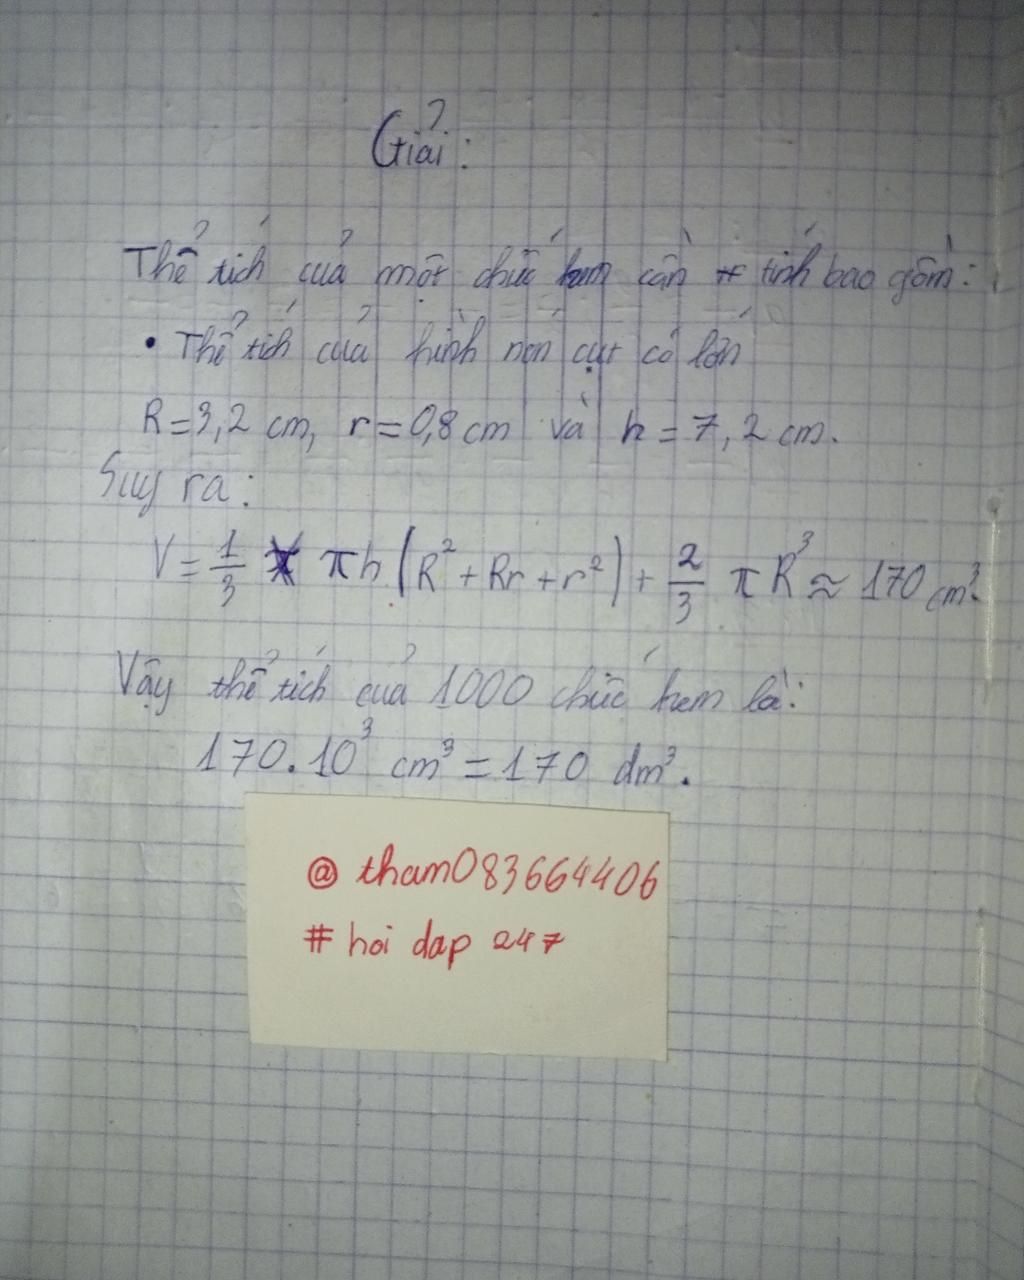 Giải:
Thể tích của một chiếc kem cần tính bao gồm:
• Thể tích của hình nón cụt có lớn
R = 3,2 cm, r = 0,8 cm và h = 7,2 cm.
Suy ra:
V = 1/3 πh (R² + Rr + r²) + 2/3 πR³ ≈ 170 cm³.
Vậy thể tích của 1000 chiếc kem là:
170.10³ cm³ = 170 dm³.
@ tham083664406
# hoi dap 247